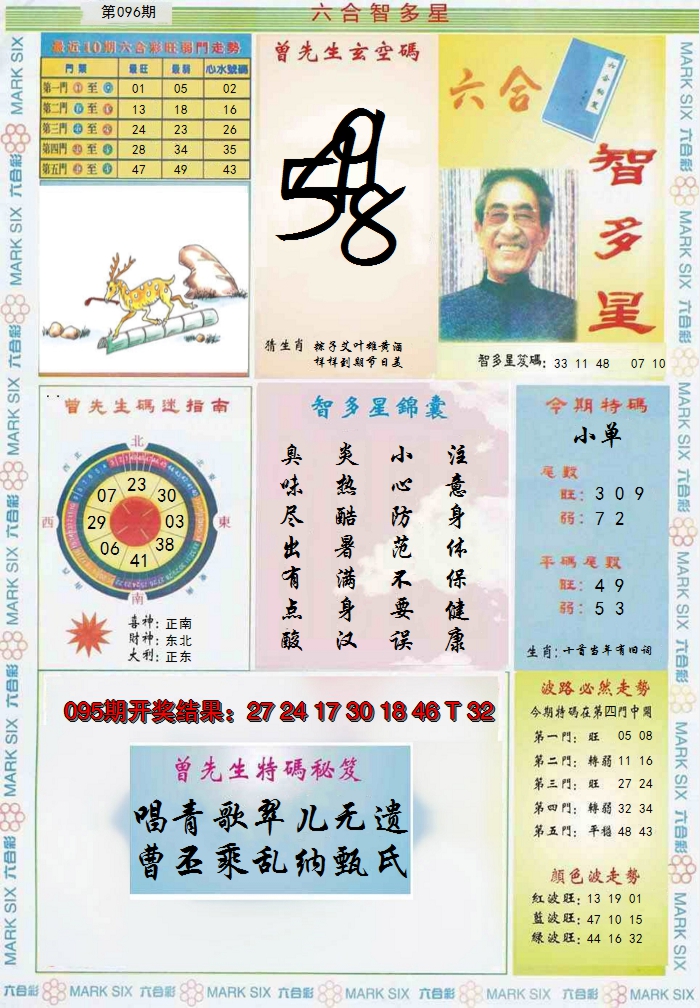 第096期
六合智多星
最近10期六合彩旺弱門走勢
門類 最旺 最弱 心水號碼
第一門 至 01 05 02
第二門 至 13 18 16
第三門 至 24 23 26
第四門 至 28 34 35
第五門 至 47 49 43
曾先生玄空碼
58
猜生肖 粽子艾叶雄黄酒
样样到期节日美
六合
智多星
智多星笈碼: 33 11 48 07 10
曾先生碼迷指南
北
西
東
南
23
07 30
29 03
06 38
41
喜神: 正南
財神: 东北
大利: 正东
智多星錦囊
注意身体保健康
小心防范不要误
炎热酷暑满身汉
臭味尽出有点酸
今期特碼
小单
尾數
旺: 3 0 9
弱: 7 2
平碼尾數
旺: 4 9
弱: 5 3
生肖: 十首当年有旧词
095期开奖结果: 27 24 17 30 18 46 T 32
曾先生特碼秘笈
唱青歌翠儿无遗
曹丕乘乱纳甄氏
波路必然走勢
今期特碼在第四門中開
第一門: 旺 05 08
第二門: 轉弱 11 16
第三門: 旺 27 24
第四門: 轉弱 32 34
第五門: 平穩 48 43
顏色波走勢
紅波旺: 13 19 01
藍波旺: 47 10 15
綠波旺: 44 16 32
MARK SIX 六合彩